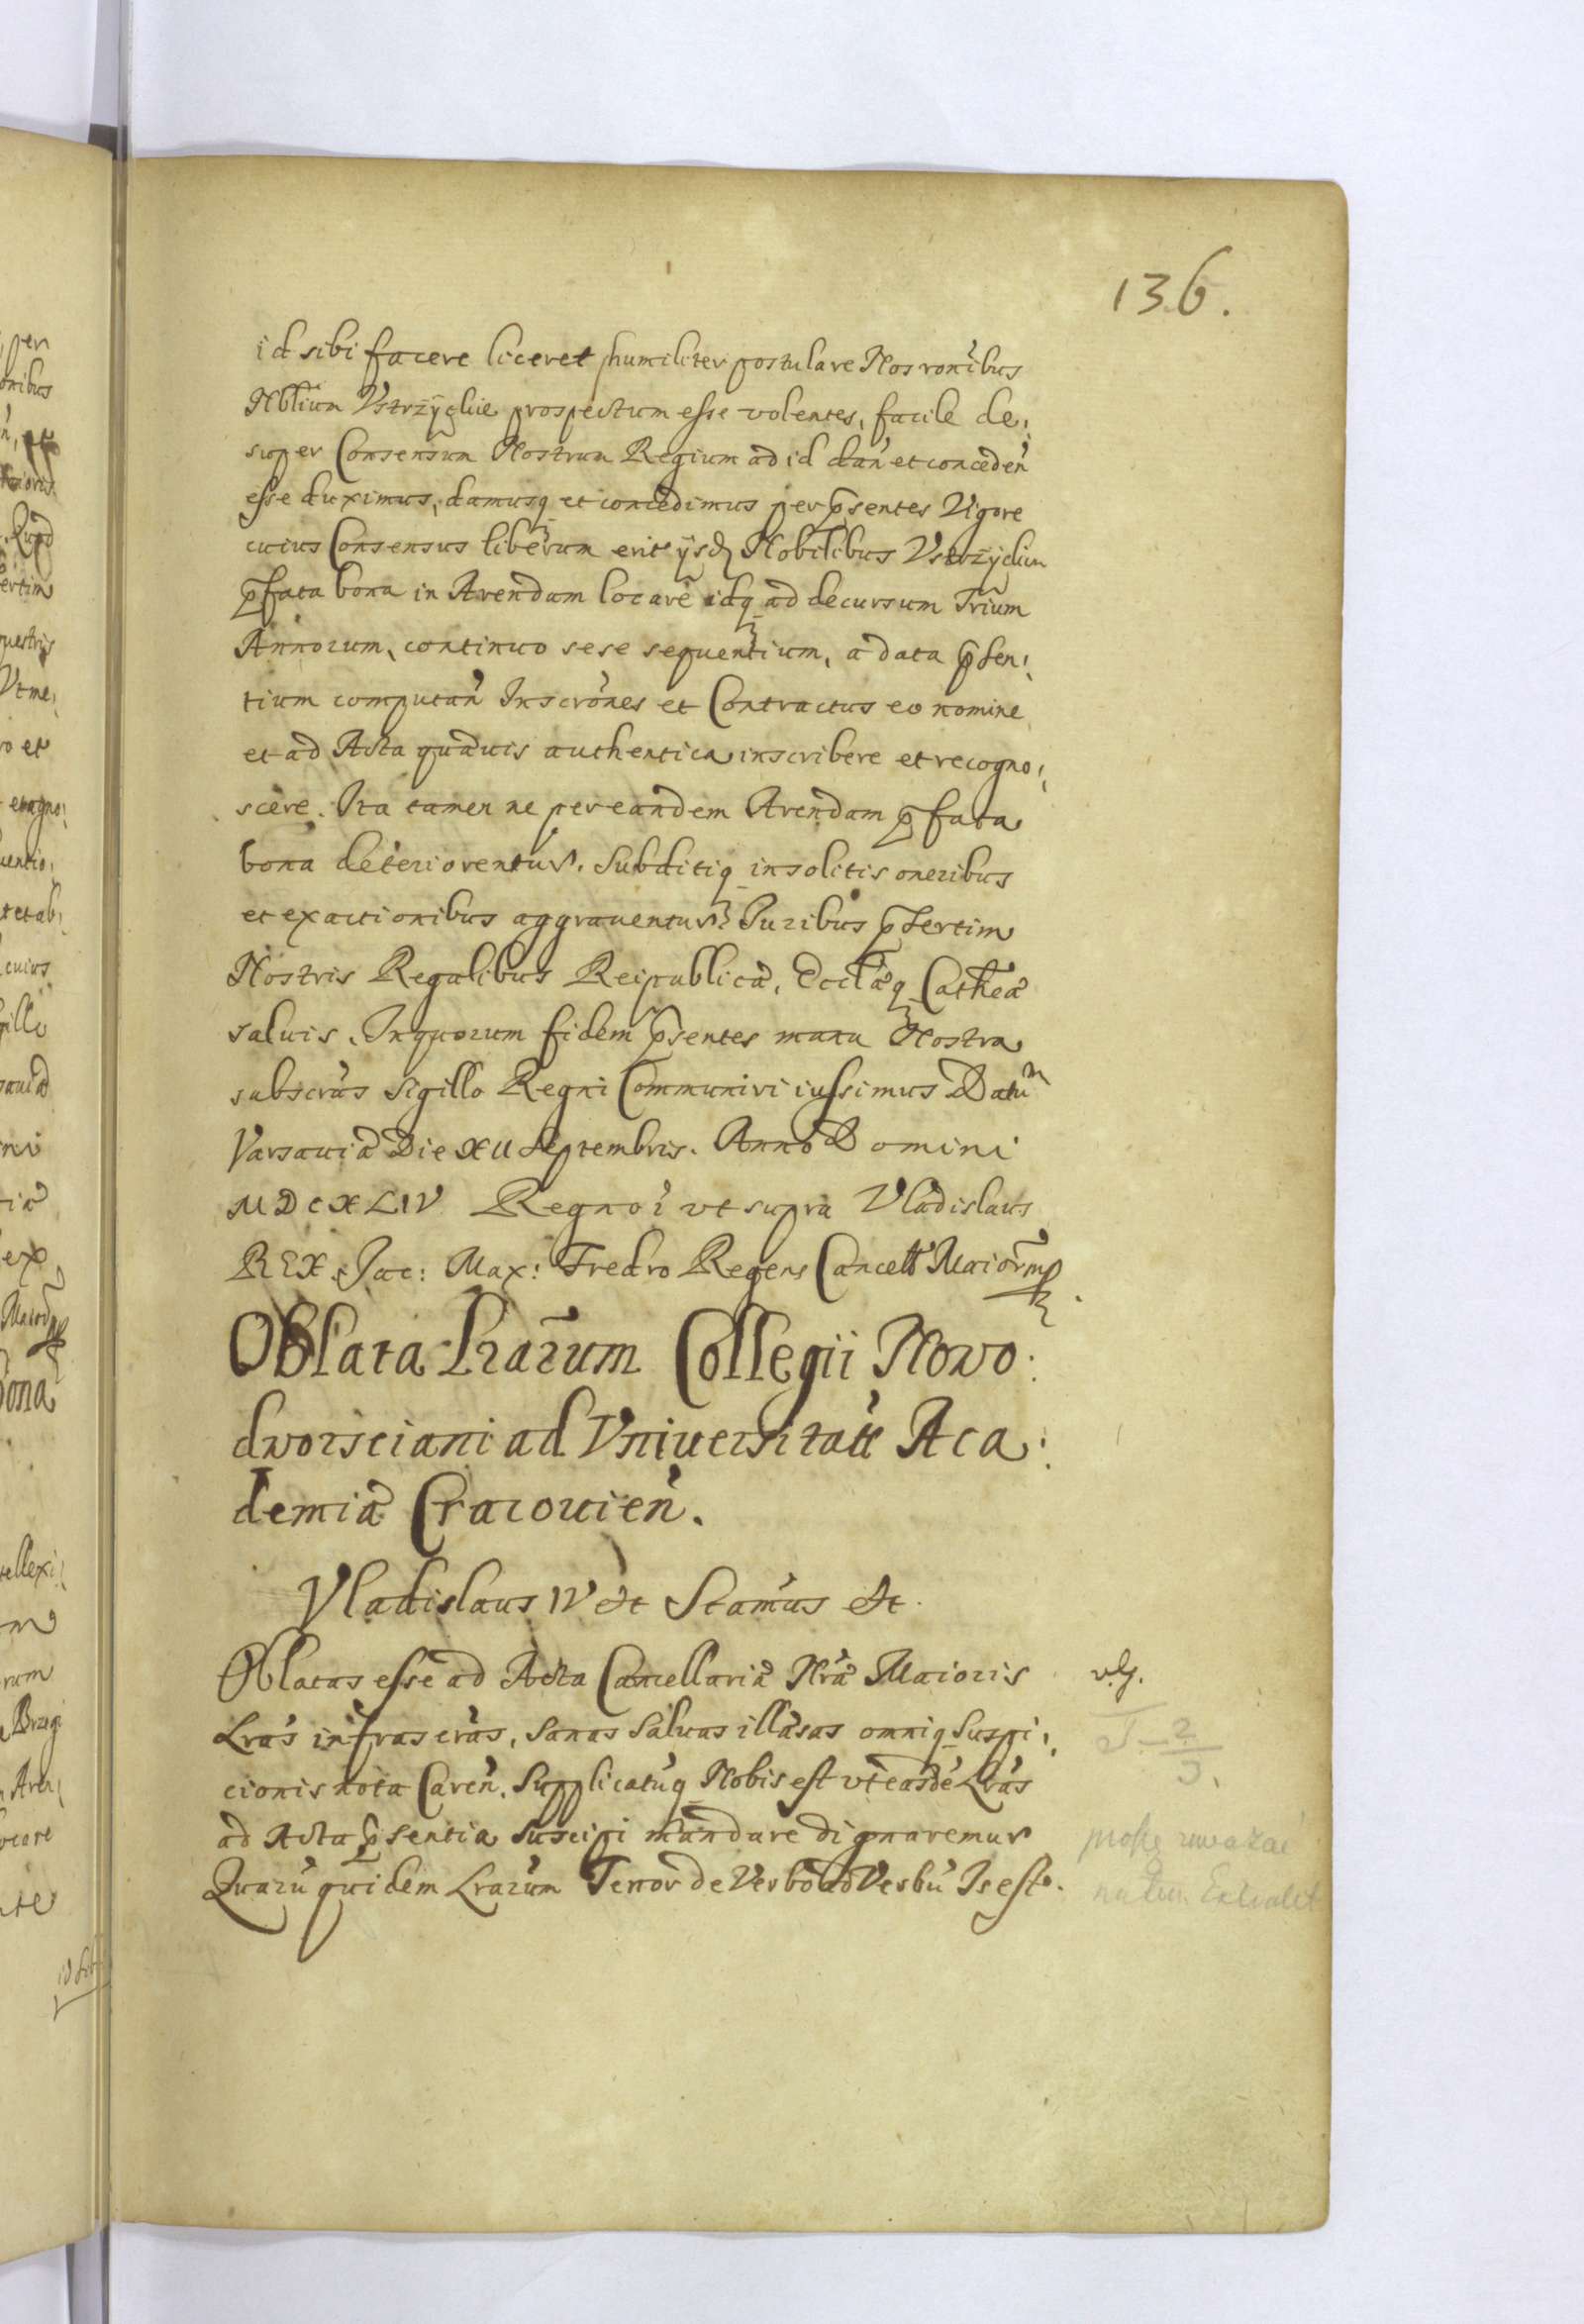 136.
id sibi facere liceret humiliter postulare Nos ronibus
Nblium Vstrzyckie prospectum esse volentes, facile de:
super Consensum Nostrum Regium ad id dan et conceden
esse duximus, damusq et concedimus per pesentes Vigore
cuius Consensus liberum erit ijsd Nobilibus Vstrzyckim
pfata bona in Arendam locare idq ad decursum Trium
Annorum, continuo sese sequentium, a data psen:
tium computan Inscrones et Contractus eo nomine
et ad Acta quavis authentica inscribere et recogno:
scere. Ita tamen ne per eandem Arendam pfata
bona deteriorentur. Subditiq insolitis oneribus
et exactionibus aggraventur Juribus psertim
Nostris Regalibus Reipublicæ, Ecclæq Catheæ
salvis. In quorum fidem psentes manu Nostra
subscras Sigillo Regni Communiri iussimus Datum
Varsaviæ Die XII Septembris. Anno Domini
MDCXLIV Regnor vt supra Vladislaus
REX. Jac: Max: Fredro Regens Cancell Maiorem
Oblata Lrarum Collegii Novo:
dworsciani ad Vniversitate Aca:
demiæ Cracovien.
Vladislaus IV etc Stamus etc.
Oblatas esse ad Acta Cancellariæ Nræ Maioris
Lras infrascras, Sanas Salvas illæsas omniq Suspi:
cionis nota Caren, Supplicatuq Nobis est vt easde Lras
ad Acta psentia Suscipi mandare dignaremur
Quaru quidem Lrarum Tenor de Verbo ad Verbu Is est.